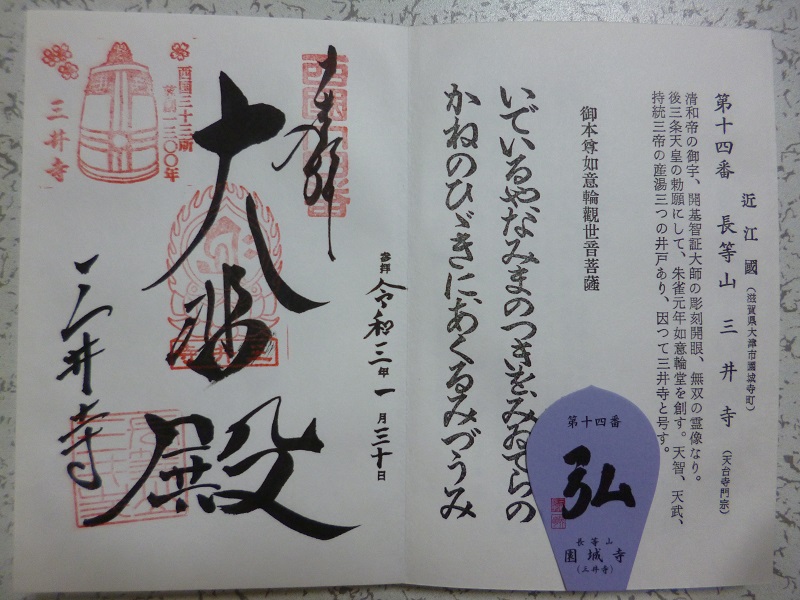 第十四番 近江國(滋賀県大津市園城寺町) 長等山三井寺(天台寺門宗)
清和帝の御宇、開基智証大師の彫刻開眼、無双の霊像なり。
後三条天皇の勅願にして、朱雀元年如意輪堂を創す。天智、天武、
持統三帝の産湯三つの井戸あり、因つて三井寺と号す。
御本尊如意輪觀世音菩薩
いでいるやなみまのつきをみゐでらの
かねのひゞきに、あくるみづうみ
第十四番
弘
長等山
園城寺
(三井寺)
奉拝
参拝 令和三年一月三十日
大悲殿
三井寺
西國三十三所
草創一三〇〇年
三井寺